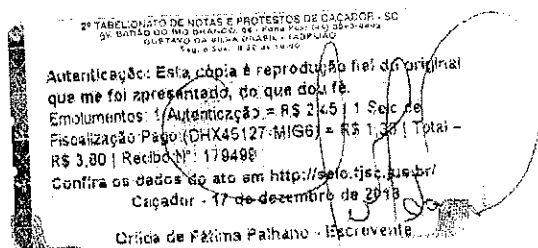 2º TABELIONATO DE NOTAS E PROTESTOS DE CAÇADOR - SC
AV. BARÃO DO RIO BRANCO,
GUSTAVO DA
Autenticação: Esta cópia é reprodução fiel do original
que me foi apresentado, do que dou fé.
Emolumentos: 1 Autenticação = R$ 2,45 | 1 Selo de
Fiscalização Pago (DHX45127-MIG6) = R$ | Total -
R$ 3,80 | Recibo Nº: 179499
Confira os dados do ato em http://selo.tjsc.jus.br/
Caçador - 17 de dezembro de
de Fátima Palhano - Escrevente